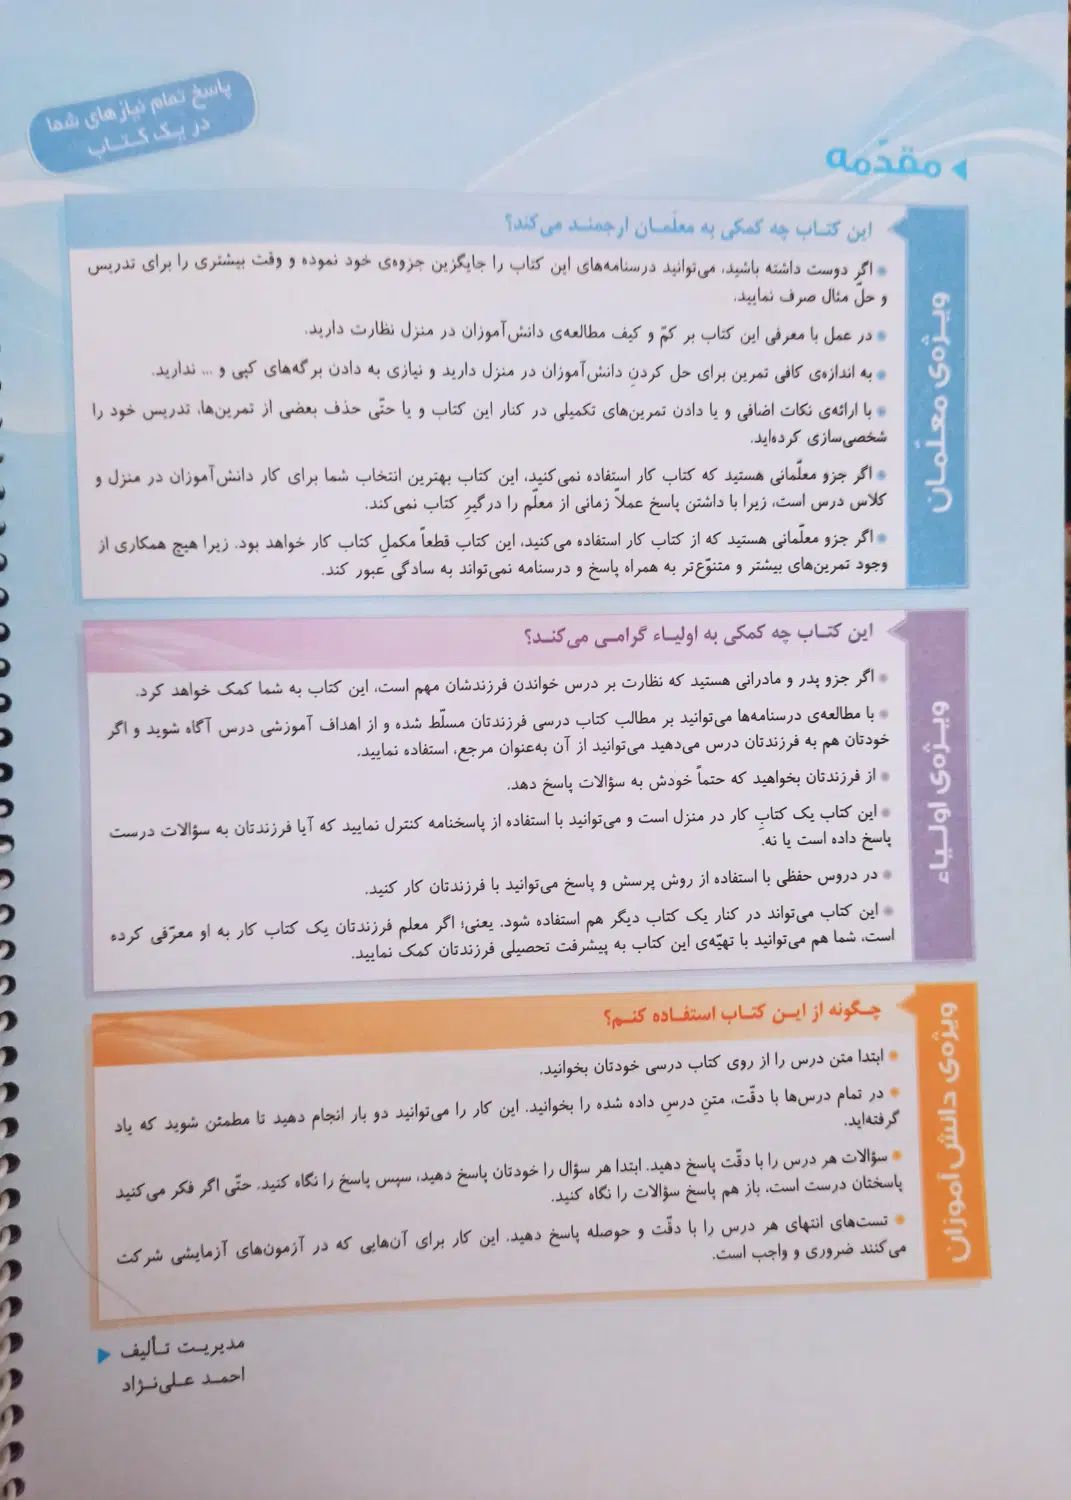 پاسخ تمام نیازهای شما
در یک کتاب
مقدّمه
ویژه‌ی معلّمان
این کتاب چه کمکی به معلّمان ارجمند می‌کند؟
اگر دوست داشته باشید، می‌توانید درسنامه‌های این کتاب را جایگزین جزوه‌ی خود نموده و وقت بیشتری را برای تدریس
و حلّ مثال صرف نمایید.
در عمل با معرفی این کتاب بر کمّ و کیف مطالعه‌ی دانش‌آموزان در منزل نظارت دارید.
به اندازه‌ی کافی تمرین برای حل کردنِ دانش‌آموزان در منزل دارید و نیازی به دادن برگه‌های کپی و ... ندارید.
با ارائه‌ی نکات اضافی و یا دادن تمرین‌های تکمیلی در کنار این کتاب و یا حتّی حذف بعضی از تمرین‌ها، تدریس خود را
شخصی‌سازی کرده‌اید.
اگر جزو معلّمانی هستید که کتاب کار استفاده نمی‌کنید، این کتاب بهترین انتخاب شما برای کار دانش‌آموزان در منزل و
کلاس درس است، زیرا با داشتن پاسخ عملاً زمانی از معلّم را درگیرِ کتاب نمی‌کند.
اگر جزو معلّمانی هستید که از کتاب کار استفاده می‌کنید، این کتاب قطعاً مکملِ کتاب کار خواهد بود. زیرا هیچ همکاری از
وجود تمرین‌های بیشتر و متنوّع‌تر به همراه پاسخ و درسنامه نمی‌تواند به سادگی عبور کند.
ویژه‌ی اولیاء
این کتاب چه کمکی به اولیاء گرامی می‌کند؟
اگر جزو پدر و مادرانی هستید که نظارت بر درس خواندن فرزندشان مهم است، این کتاب به شما کمک خواهد کرد.
با مطالعه‌ی درسنامه‌ها می‌توانید بر مطالب کتاب درسی فرزندتان مسلّط شده و از اهداف آموزشی درس آگاه شوید و اگر
خودتان هم به فرزندتان درس می‌دهید می‌توانید از آن به‌عنوان مرجع، استفاده نمایید.
از فرزندتان بخواهید که حتماً خودش به سؤالات پاسخ دهد.
این کتاب یک کتابِ کار در منزل است و می‌توانید با استفاده از پاسخنامه کنترل نمایید که آیا فرزندتان به سؤالات درست
پاسخ داده است یا نه.
در دروس حفظی با استفاده از روش پرسش و پاسخ می‌توانید با فرزندتان کار کنید.
این کتاب می‌تواند در کنار یک کتاب دیگر هم استفاده شود. یعنی؛ اگر معلم فرزندتان یک کتاب کار به او معرّفی کرده
است، شما هم می‌توانید با تهیّه‌ی این کتاب به پیشرفت تحصیلی فرزندتان کمک نمایید.
ویژه‌ی دانش‌آموزان
چگونه از این کتاب استفاده کنم؟
ابتدا متن درس را از روی کتاب درسی خودتان بخوانید.
در تمام درس‌ها با دقّت، متنِ درسِ داده شده را بخوانید. این کار را می‌توانید دو بار انجام دهید تا مطمئن شوید که یاد
گرفته‌اید.
سؤالات هر درس را با دقّت پاسخ دهید. ابتدا هر سؤال را خودتان پاسخ دهید، سپس پاسخ را نگاه کنید. حتّی اگر فکر می‌کنید
پاسختان درست است، باز هم پاسخ سؤالات را نگاه کنید.
تست‌های انتهای هر درس را با دقّت و حوصله پاسخ دهید. این کار برای آن‌هایی که در آزمون‌های آزمایشی شرکت
می‌کنند ضروری و واجب است.
مدیریت تألیف
احمد علی‌نژاد